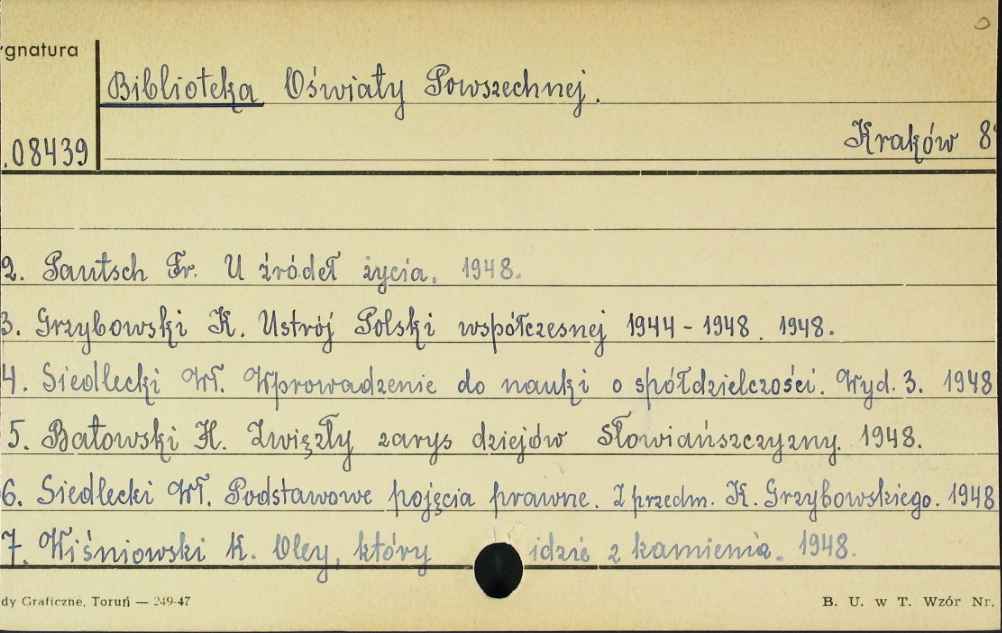 ygnatura
Biblioteka Oświaty Powszechnej.
.08439
Kraków 8°
2. Pautsch Fr. U źródeł życia. 1948.
3. Grzybowski K. Ustrój Polski współczesnej 1944-1948. 1948.
4. Siedlecki Wł. Wprowadzenie do nauki o spółdzielczości. Wyd. 3. 1948
5. Batowski H. Zwięzły zarys dziejów Słowiańszczyzny. 1948.
6. Siedlecki Wł. Podstawowe pojęcia prawne. Z przedm. K. Grzybowskiego. 1948
7. Wiśniowski K. Olej, który idzie z kamienia. 1948.
dy Graficzne, Toruń — 249-47
B. U. w T. Wzór Nr.